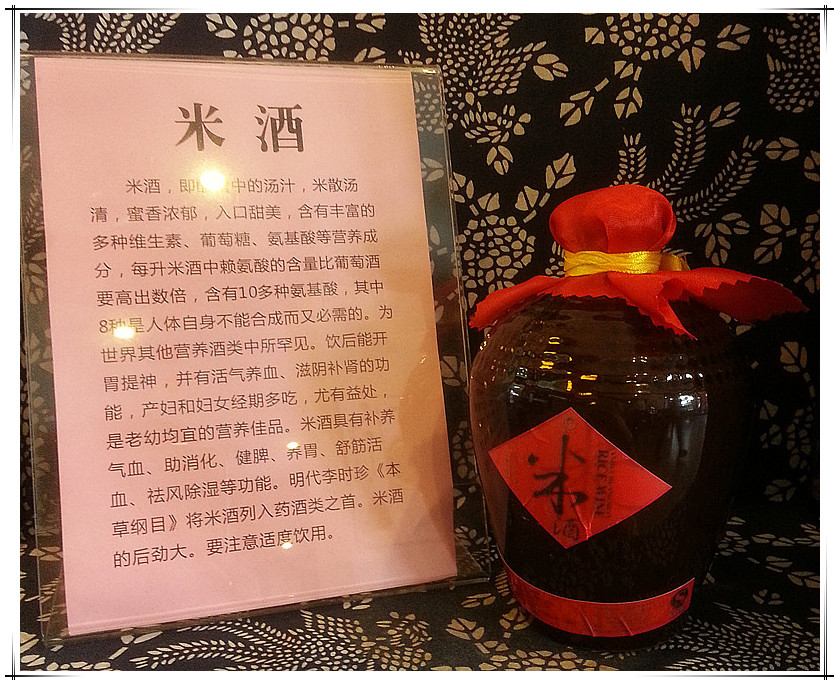 米酒
米酒，即酿 中的汤汁，米散汤
清，蜜香浓郁，入口甜美，含有丰富的
多种维生素、葡萄糖、氨基酸等营养成
分，每升米酒中赖氨酸的含量比葡萄酒
要高出数倍，含有10多种氨基酸，其中
8种是人体自身不能合成而又必需的。为
世界其他营养酒类中所罕见。饮后能开
胃提神，并有活气养血、滋阴补肾的功
能，产妇和妇女经期多吃，尤有益处，
是老幼均宜的营养佳品。米酒具有补养
气血、助消化、健脾、养胃、舒筋活
血、祛风除湿等功能。明代李时珍《本
草纲目》将米酒列入药酒类之首。米酒
的后劲大。要注意适度饮用。
米酒
RICE WINE